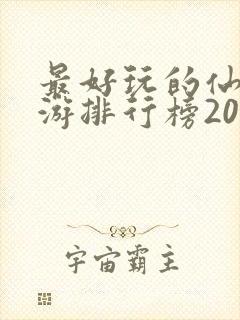 最好玩的仙
游排行榜20
宇宙霸主